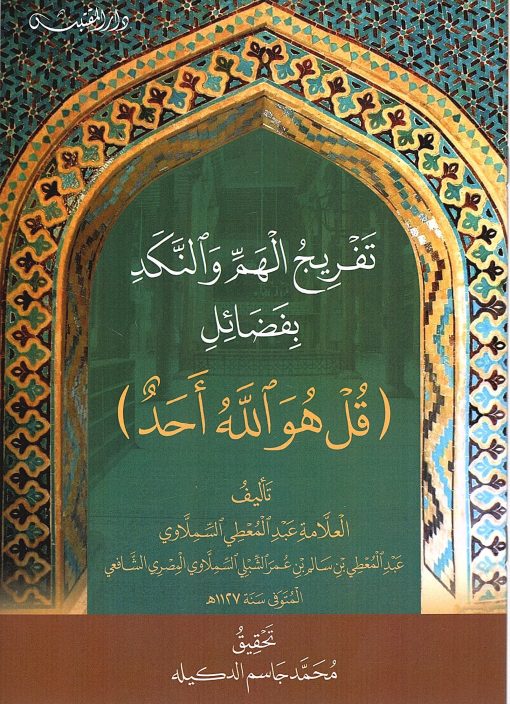 دار المقتبس
تَفْرِيجُ الْهَمِّ وَٱلنَّكَدِ
بِفَضَائِلِ
(قُلْ هُوَ ٱللَّهُ أَحَدٌ)
تَأليفُ
العَلَّامَةِ عَبْدِ الْمُعْطِي السَّمِلَّاوي
عَبْدِ الْمُعْطِي بْنِ سَالِمِ بْنِ عُمَرَ الشِّبْلِي السَّمِلَّاوِي المِصْرِي الشَّافِعِي
المُتَوفّى سَنَة ١١٢٧هـ
تَحْقِيقُ
مُحَمَّد جَاسِم الدكيله